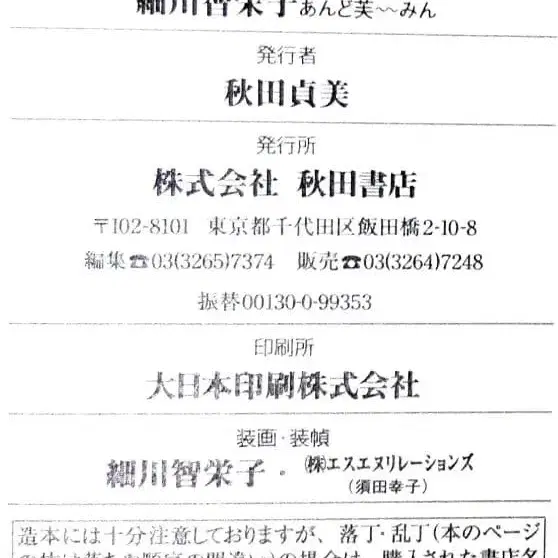 細川智栄子あんど芙~~みん
発行者
秋田貞美
発行所
株式会社 秋田書店
〒102-8101 東京都千代田区飯田橋2-10-8
編集☎03(3265)7374 販売☎03(3264)7248
振替00130-0-99353
印刷所
大日本印刷株式会社
装画・装幀
細川智栄子・㈱エスエヌリレーションズ
(須田幸子)
造本には十分注意しておりますが、落丁・乱丁(本のページ